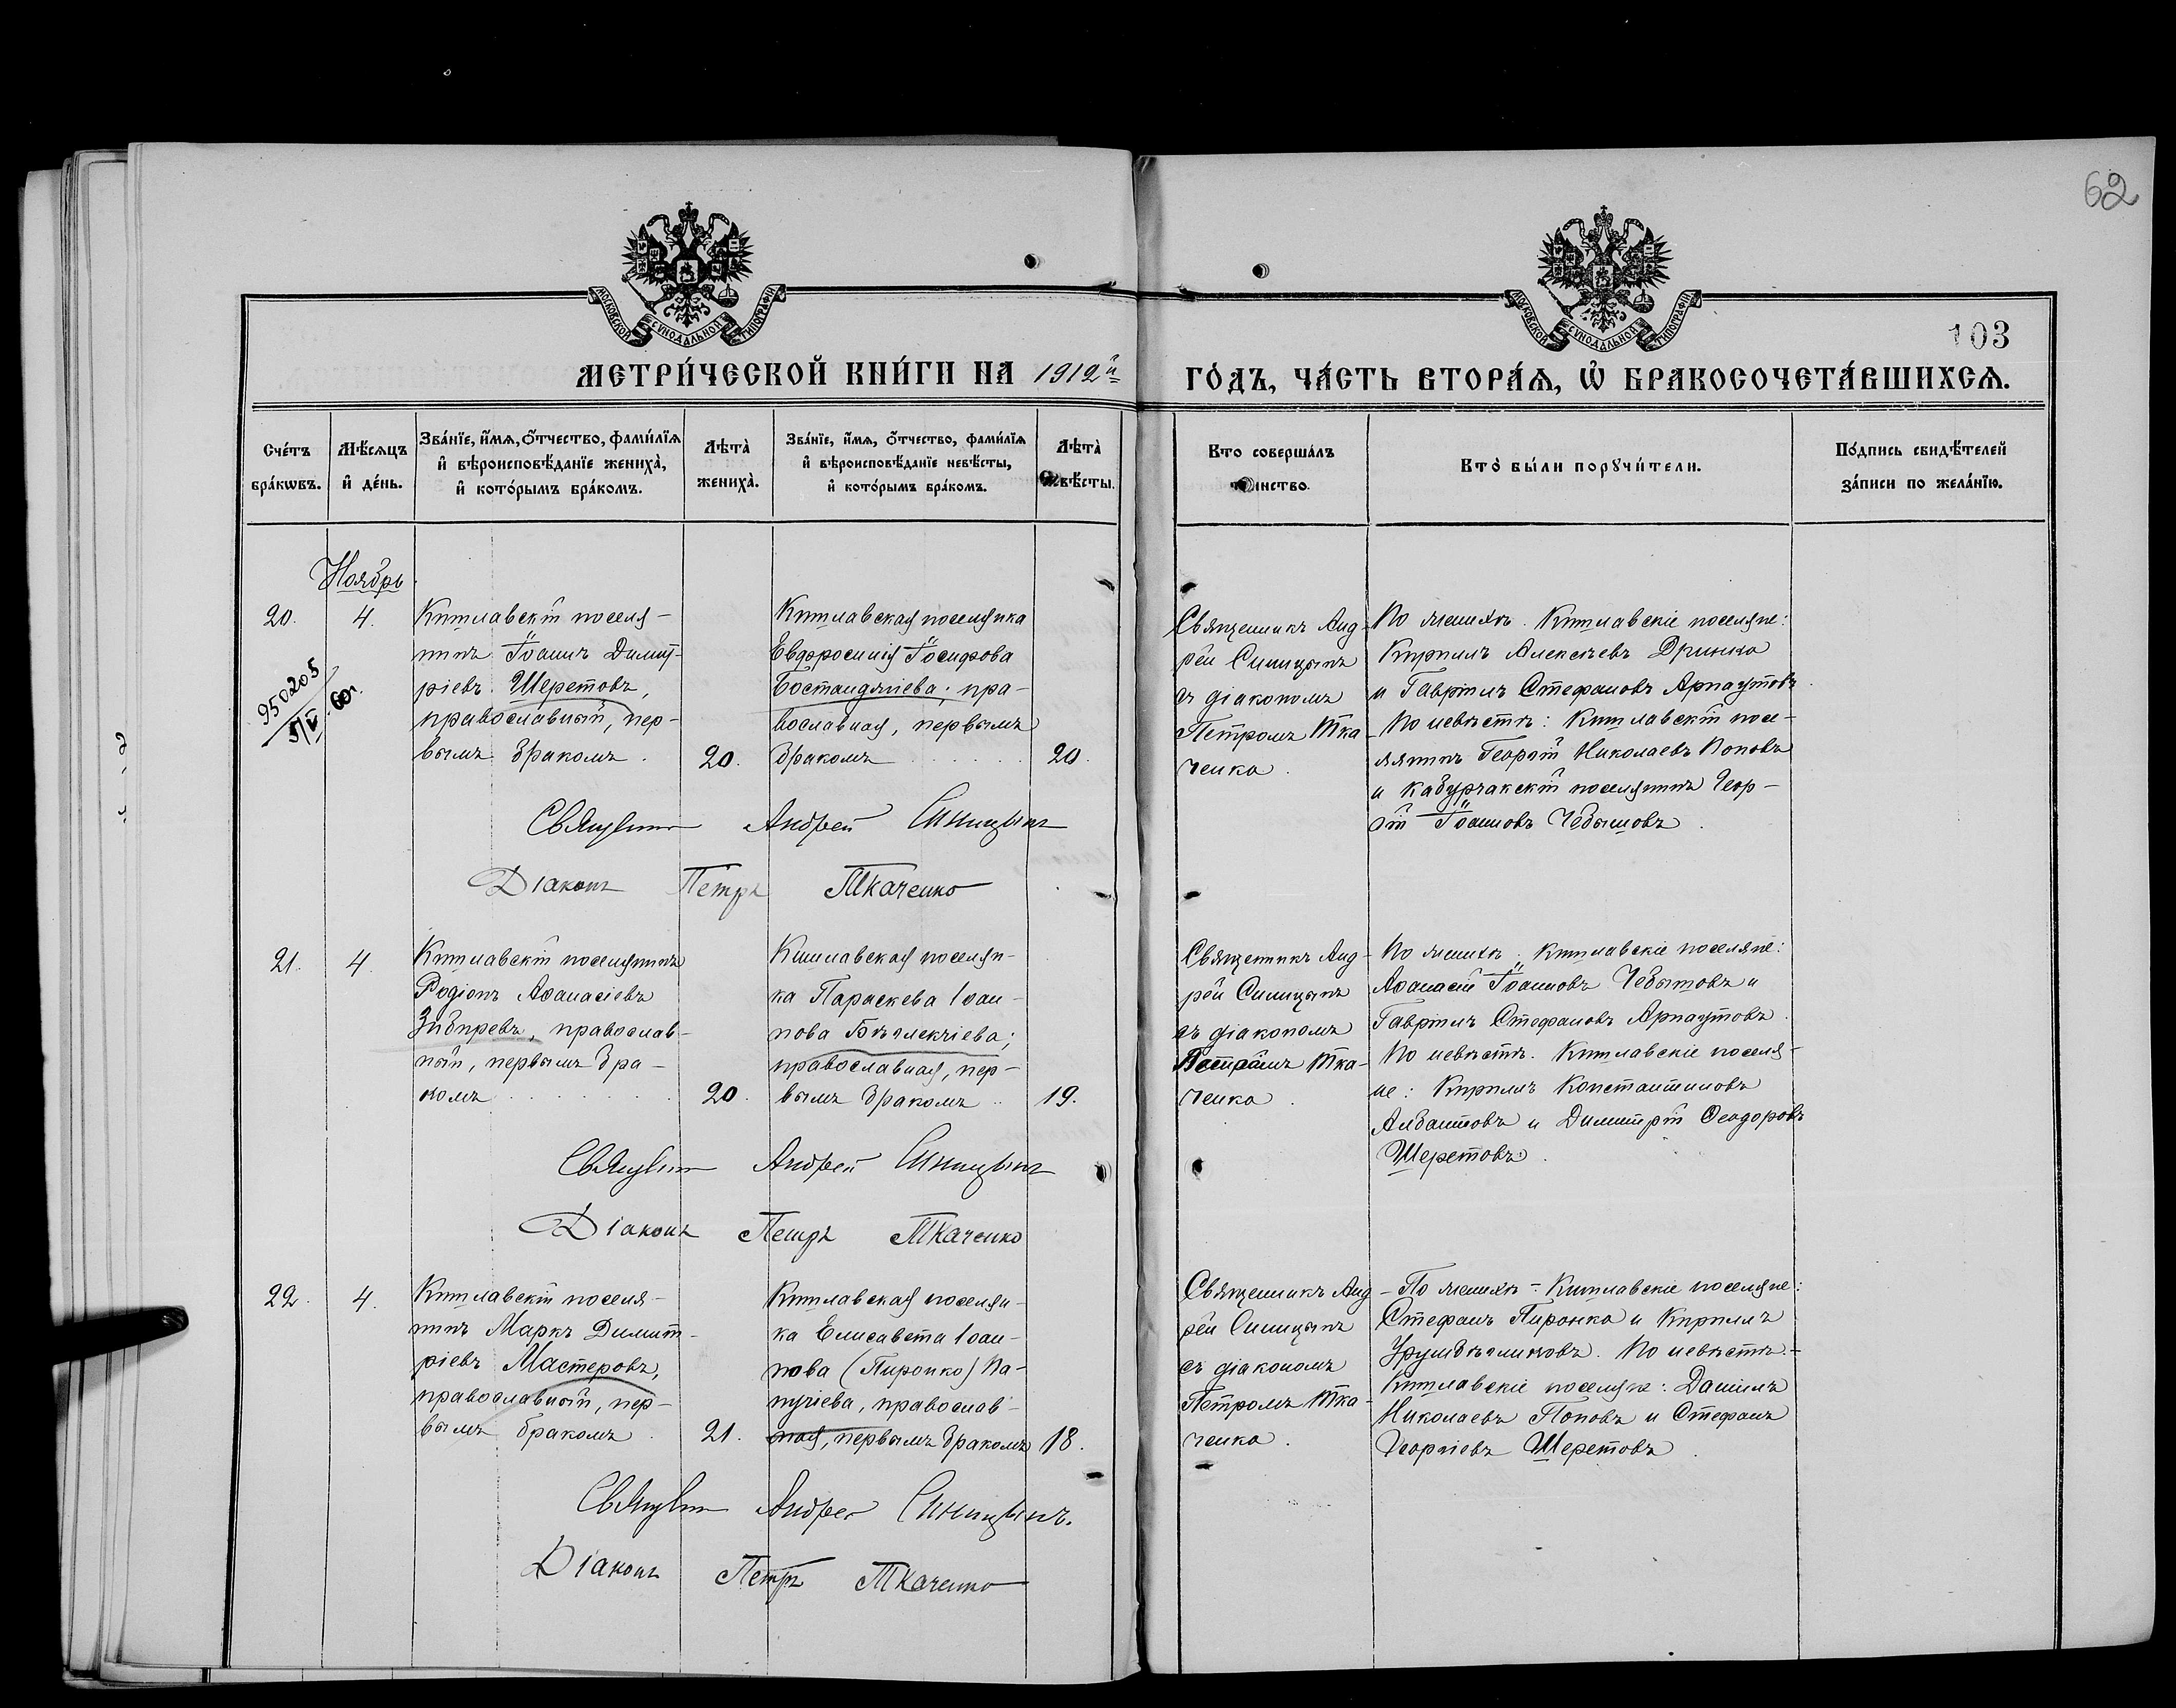 62
МОСКОВСКОЙ СѴНОДАЛЬНОЙ ТИПОГРАФІИ
МОСКОВСКОЙ СѴНОДАЛЬНОЙ ТИПОГРАФІИ
103
МЕТРИ́ЧЕСКОЙ КНИ́ГИ НА 1912й
ГО́ДЪ, ЧА́СТЬ ВТОРА́Ѧ, Ѽ БРАКОСОЧЕТА́ВШИХСѦ.
Сче́тъ бра́кѡвъ.
Мѣ́сѧцъ и҆ де́нь.
Зва́нїе, и҆́мѧ, ѻ҆́тчество, фами́лїѧ
и҆ вѣроисповѣ́данїе жениха̀,
и҆ кото́рымъ бра́комъ.
Лѣта̀ жениха̀.
Зва́нїе, и҆́мѧ, ѻ҆́тчество, фами́лїѧ
и҆ вѣроисповѣ́данїе невѣ́сты,
и҆ кото́рымъ бра́комъ.
Лѣта̀ невѣ́сты.
Кто соверша́лъ
таинство.
Кто̀ бы́ли порꙋчи́тели.
По́дпись свидѣ́телей
за́писи по жела́нїю.
Ноябрь
20.
4.
950205
Кишлавскій поселя-
нинъ Іоаннъ Димит-
ріевъ Шеретовъ,
православный, пер-
вымъ бракомъ.
20.
Кишлавская поселянка
Евфросинія Іосифова
Бостанджіева; пра-
вославная, первымъ
бракомъ
20.
Священникъ Анд-
рей Синицынъ
съ діакономъ
Петромъ Тка-
ченко.
По женихѣ. Кишлавскіе поселяне:
Кириллъ Алексѣевъ Дринко
и Гавріилъ Стефановъ Арнаутовъ.
По невѣстѣ: Кишлавскій посе-
лянинъ Георгій Николаевъ Поповъ
и Кабурчакскій поселянинъ Геор-
гій Іоанновъ Чебышовъ.
Священникъ Андрей Синицынъ
Діаконъ Петръ Ткаченко
21.
4.
Кишлавскій поселянинъ
Родіонъ Аѳанасіевъ
Зибиревъ, православ-
ный, первымъ бра-
комъ
20.
Кишлавская поселян-
ка Параскева Іоан-
нова Бекчіева;
православная, пер-
вымъ бракомъ
19.
Священникъ Анд-
рей Синицынъ
съ діакономъ
Петромъ Тка-
ченко.
По женихѣ: Кишлавскіе поселяне:
Аѳанасій Іоанновъ Чебышовъ и
Гавріилъ Стефановъ Арнаутовъ.
По невѣстѣ. Кишлавскіе поселя-
не: Кириллъ Константиновъ
Албантовъ и Димитрій Ѳеодоровъ
Шеретовъ.
Священникъ Андрей Синицынъ
Діаконъ Петръ Ткаченко
22.
4.
Кишлавскій поселя-
нинъ Маркъ Димит-
ріевъ Мастеровъ,
православный, пер-
вымъ бракомъ.
21.
Кишлавская поселян-
ка Елисавета Іоан-
нова (Пиронко) Па-
пучіева, православ-
ная, первымъ бракомъ
18.
Священникъ Анд-
рей Синицынъ
съ діакономъ
Петромъ Тка-
ченко.
По женихѣ: Кишлавскіе поселяне:
Стефанъ Пиронко и Кириллъ
По невѣстѣ:
Кишлавскіе поселяне: Даніилъ
Николаевъ Поповъ и Стефанъ
Георгіевъ Шеретовъ.
Священникъ Андрей Синицынъ.
Діаконъ Петръ Ткаченко